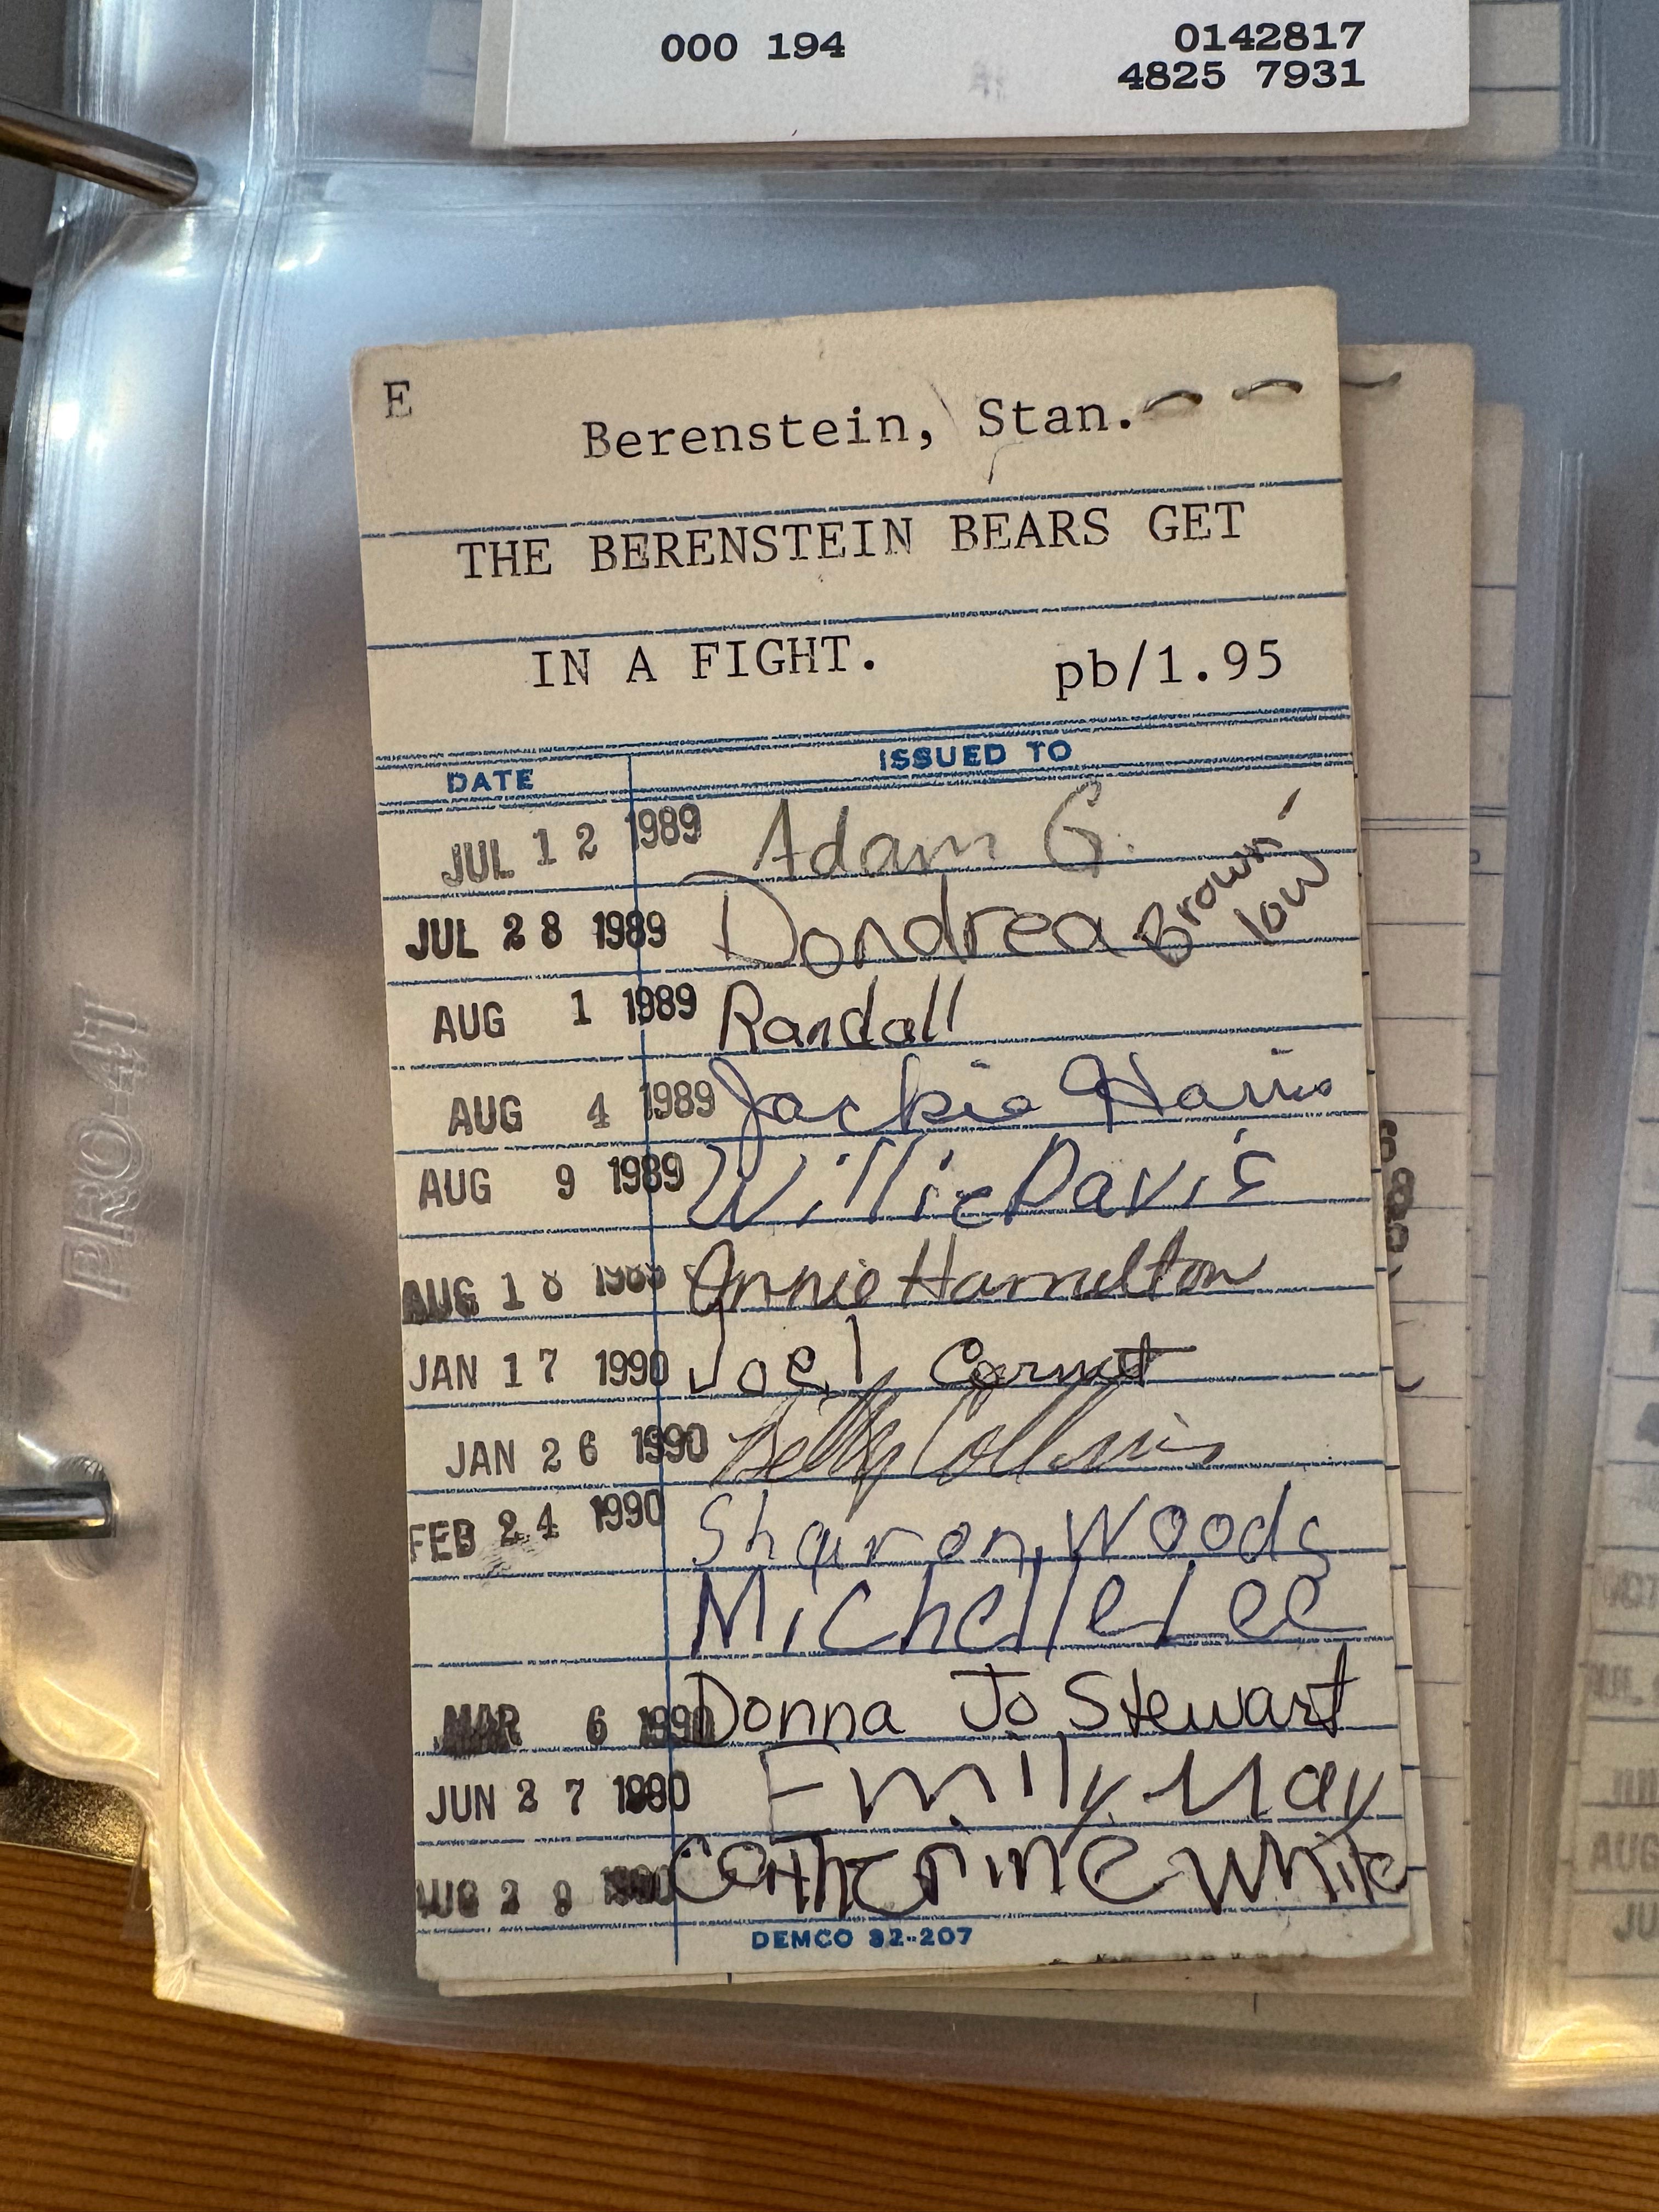 000 194 0142817
4825 7931
E
Berenstein, Stan.
THE BERENSTEIN BEARS GET
IN A FIGHT. pb/1.95
DATE ISSUED TO
JUL 12 1989 Adam G.
JUL 28 1989 Dondrea Brown
low
AUG 1 1989 Randall
AUG 4 1989 Jackie Harris
AUG 9 1989 Willie Davis
AUG 18 1989 Annie Hamilton
JAN 17 1990 Joel
JAN 26 1990 Betty Collins
FEB 24 1990 Sharon Woods
Michelle Lee
MAR 6 1990 Donna Jo Stewart
JUN 27 1990 Emily May
AUG 29 1990 Catherine White
DEMCO 32-207
PRO-4T
AUG
JU